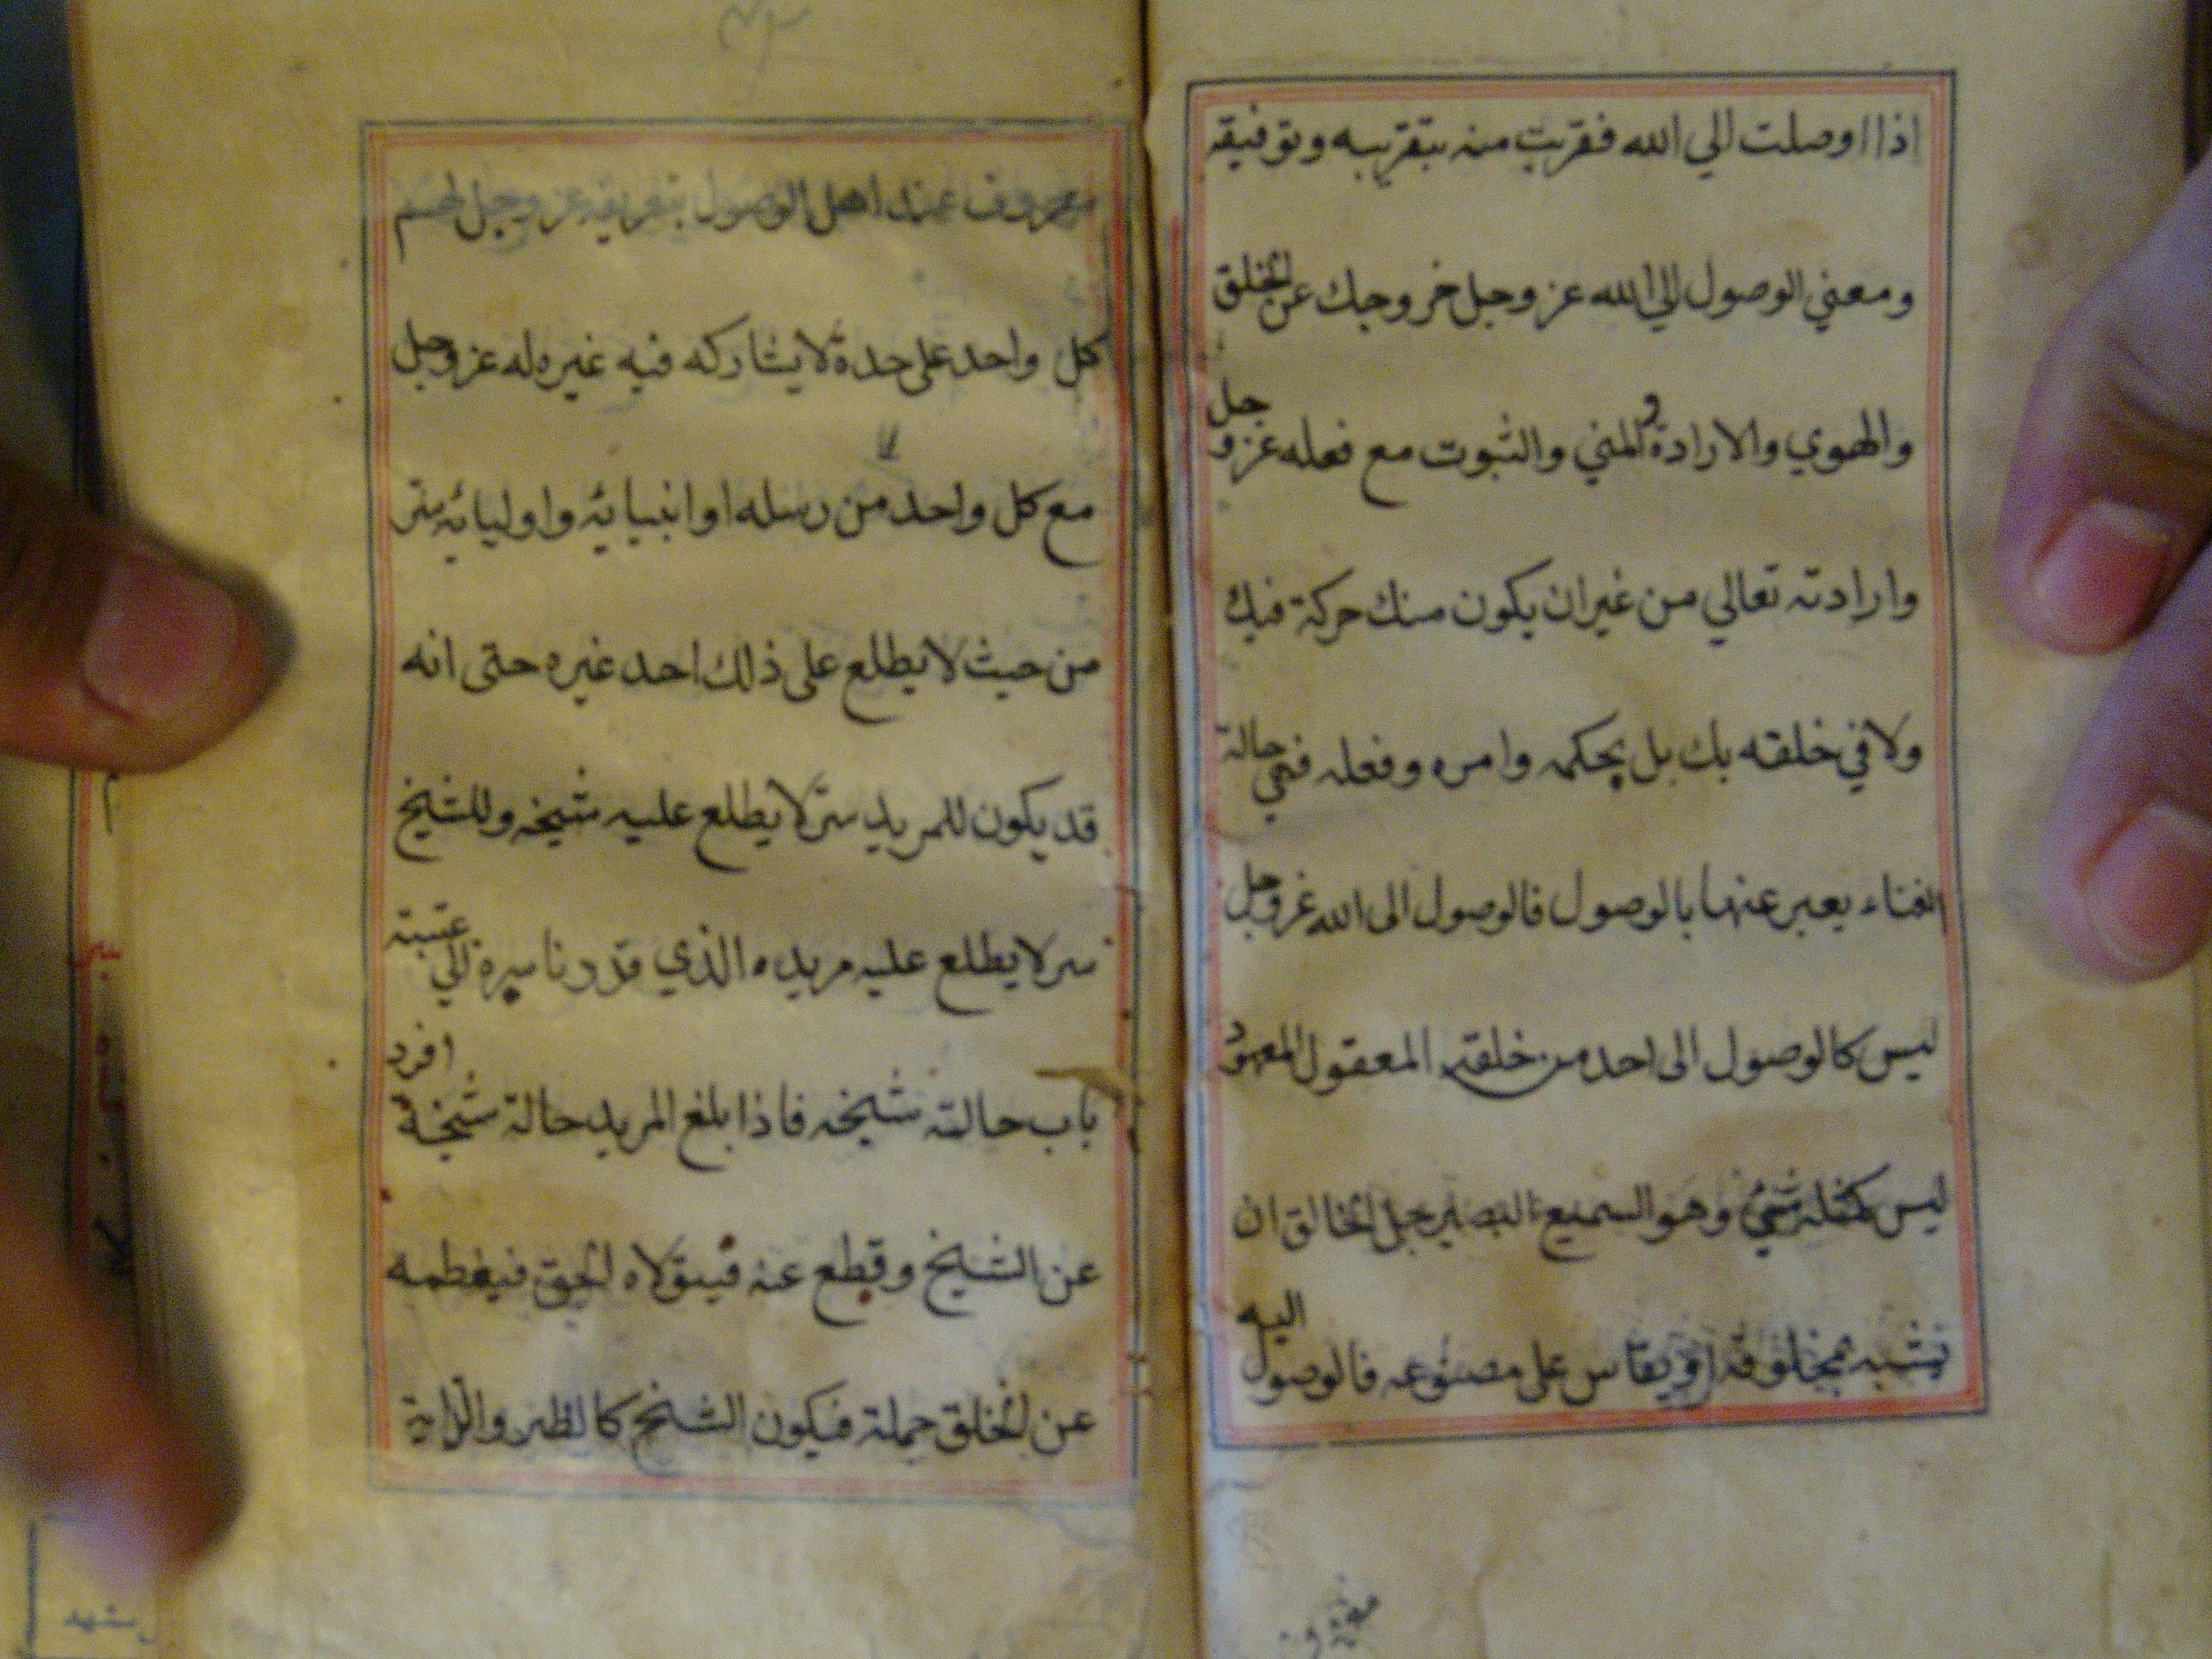 اذا اوصلت الي الله فقربت منه بتقريبه وتوفيقه
ومعني الوصول الي الله عز وجل خروجك عن الخلق
والهوي والارادة والمني والثبوت مع فعله عز وجل
وارادته تعالي من غير ان يكون منك حركة فيك
ولا في خلقته بك بل بحكمه وامره وفعله فهي حالة
الفناء يعبر عنها بالوصول فالوصول الى الله عز وجل
ليس كالوصول الى احد من خلقته المعقول المعهود
ليس كمثله شيئ وهو السميع البصير جل الخالق ان
يشبه بمخلوقه او يقاس على مصنوعه فالوصول اليه
معروف عند اهل الوصول بتعريفه عز وجل لهم
كل واحد على حدة لا يشاركه فيه غيره له عز وجل
مع كل واحد من رسله او انبيائه واوليائه ستر
من حيث لا يطلع على ذلك احد غيره حتى انه
قد يكون للمريد ستر لا يطلع عليه شيخه وللشيخ
سر لا يطلع عليه مريده الذي قد دنا سيره الي عتبته
باب حالته شيخه فاذا بلغ المريد حالة شيخه افرد
عن الشيخ وقطع عنه فيتولاه الحق فيفطمه
عن الخلق جملة فيكون الشيخ كالظير والداية